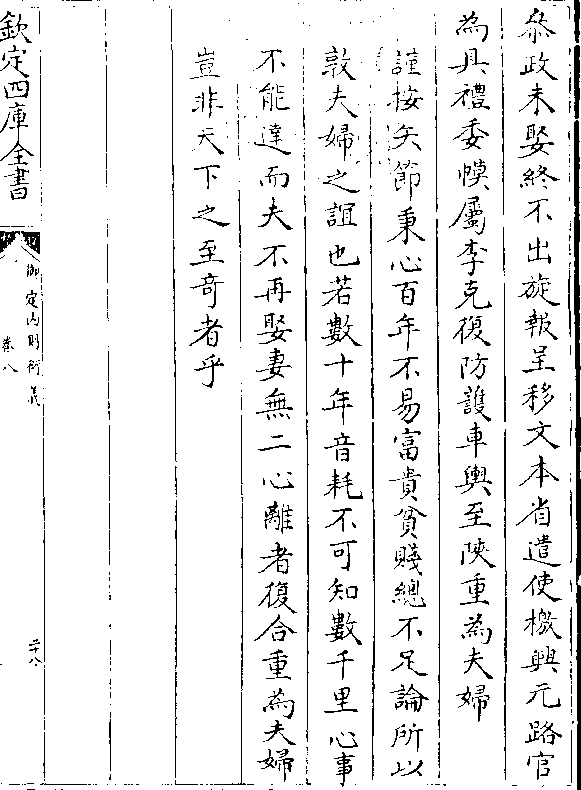 叅政未娶終不出旋報呈移文本省遣使檄興元路官
為具禮委幙屬李克復防護車輿至陜重為夫婦
謹按矢節秉心百年不易富貴貧賤總不足論所以
敦夫婦之誼也若數十年音耗不可知數千里心事
不能達而夫不再娶妻無二心離者復合重為夫婦
豈非天下之至奇者乎
欽定四庫全書
御定內則衍義
卷八
二十八